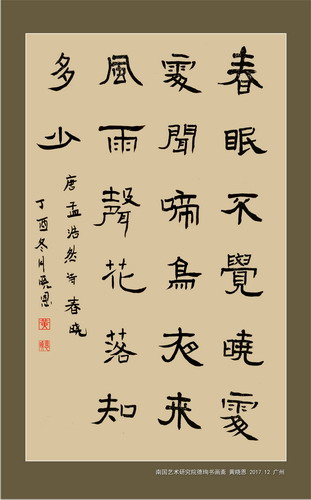 春眠不覺曉處
處聞啼鳥夜来
風雨聲花落知
多少
唐孟浩然诗春晓
丁酉冬月晓恩
黄
南国艺术研究院德珣书画斋 黄晓恩 2017.12 广州